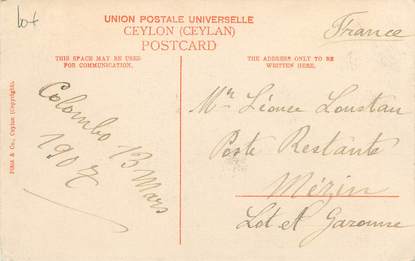 lot
UNION POSTALE UNIVERSELLE
CEYLON (CEYLAN)
POSTCARD
France
THIS SPACE MAY BE USED
FOR COMMUNICATION.
THE ADDRESS ONLY TO BE
WRITTEN HERE.
Plâté & Co., Ceylon (Copyright).
Colombo 13 Mars
1907
Mr Léonce Loustau
Poste Restante
Mézin
Lot et Garonne